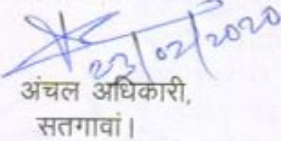 23/02/2020
अंचल अधिकारी,
सतगावां।